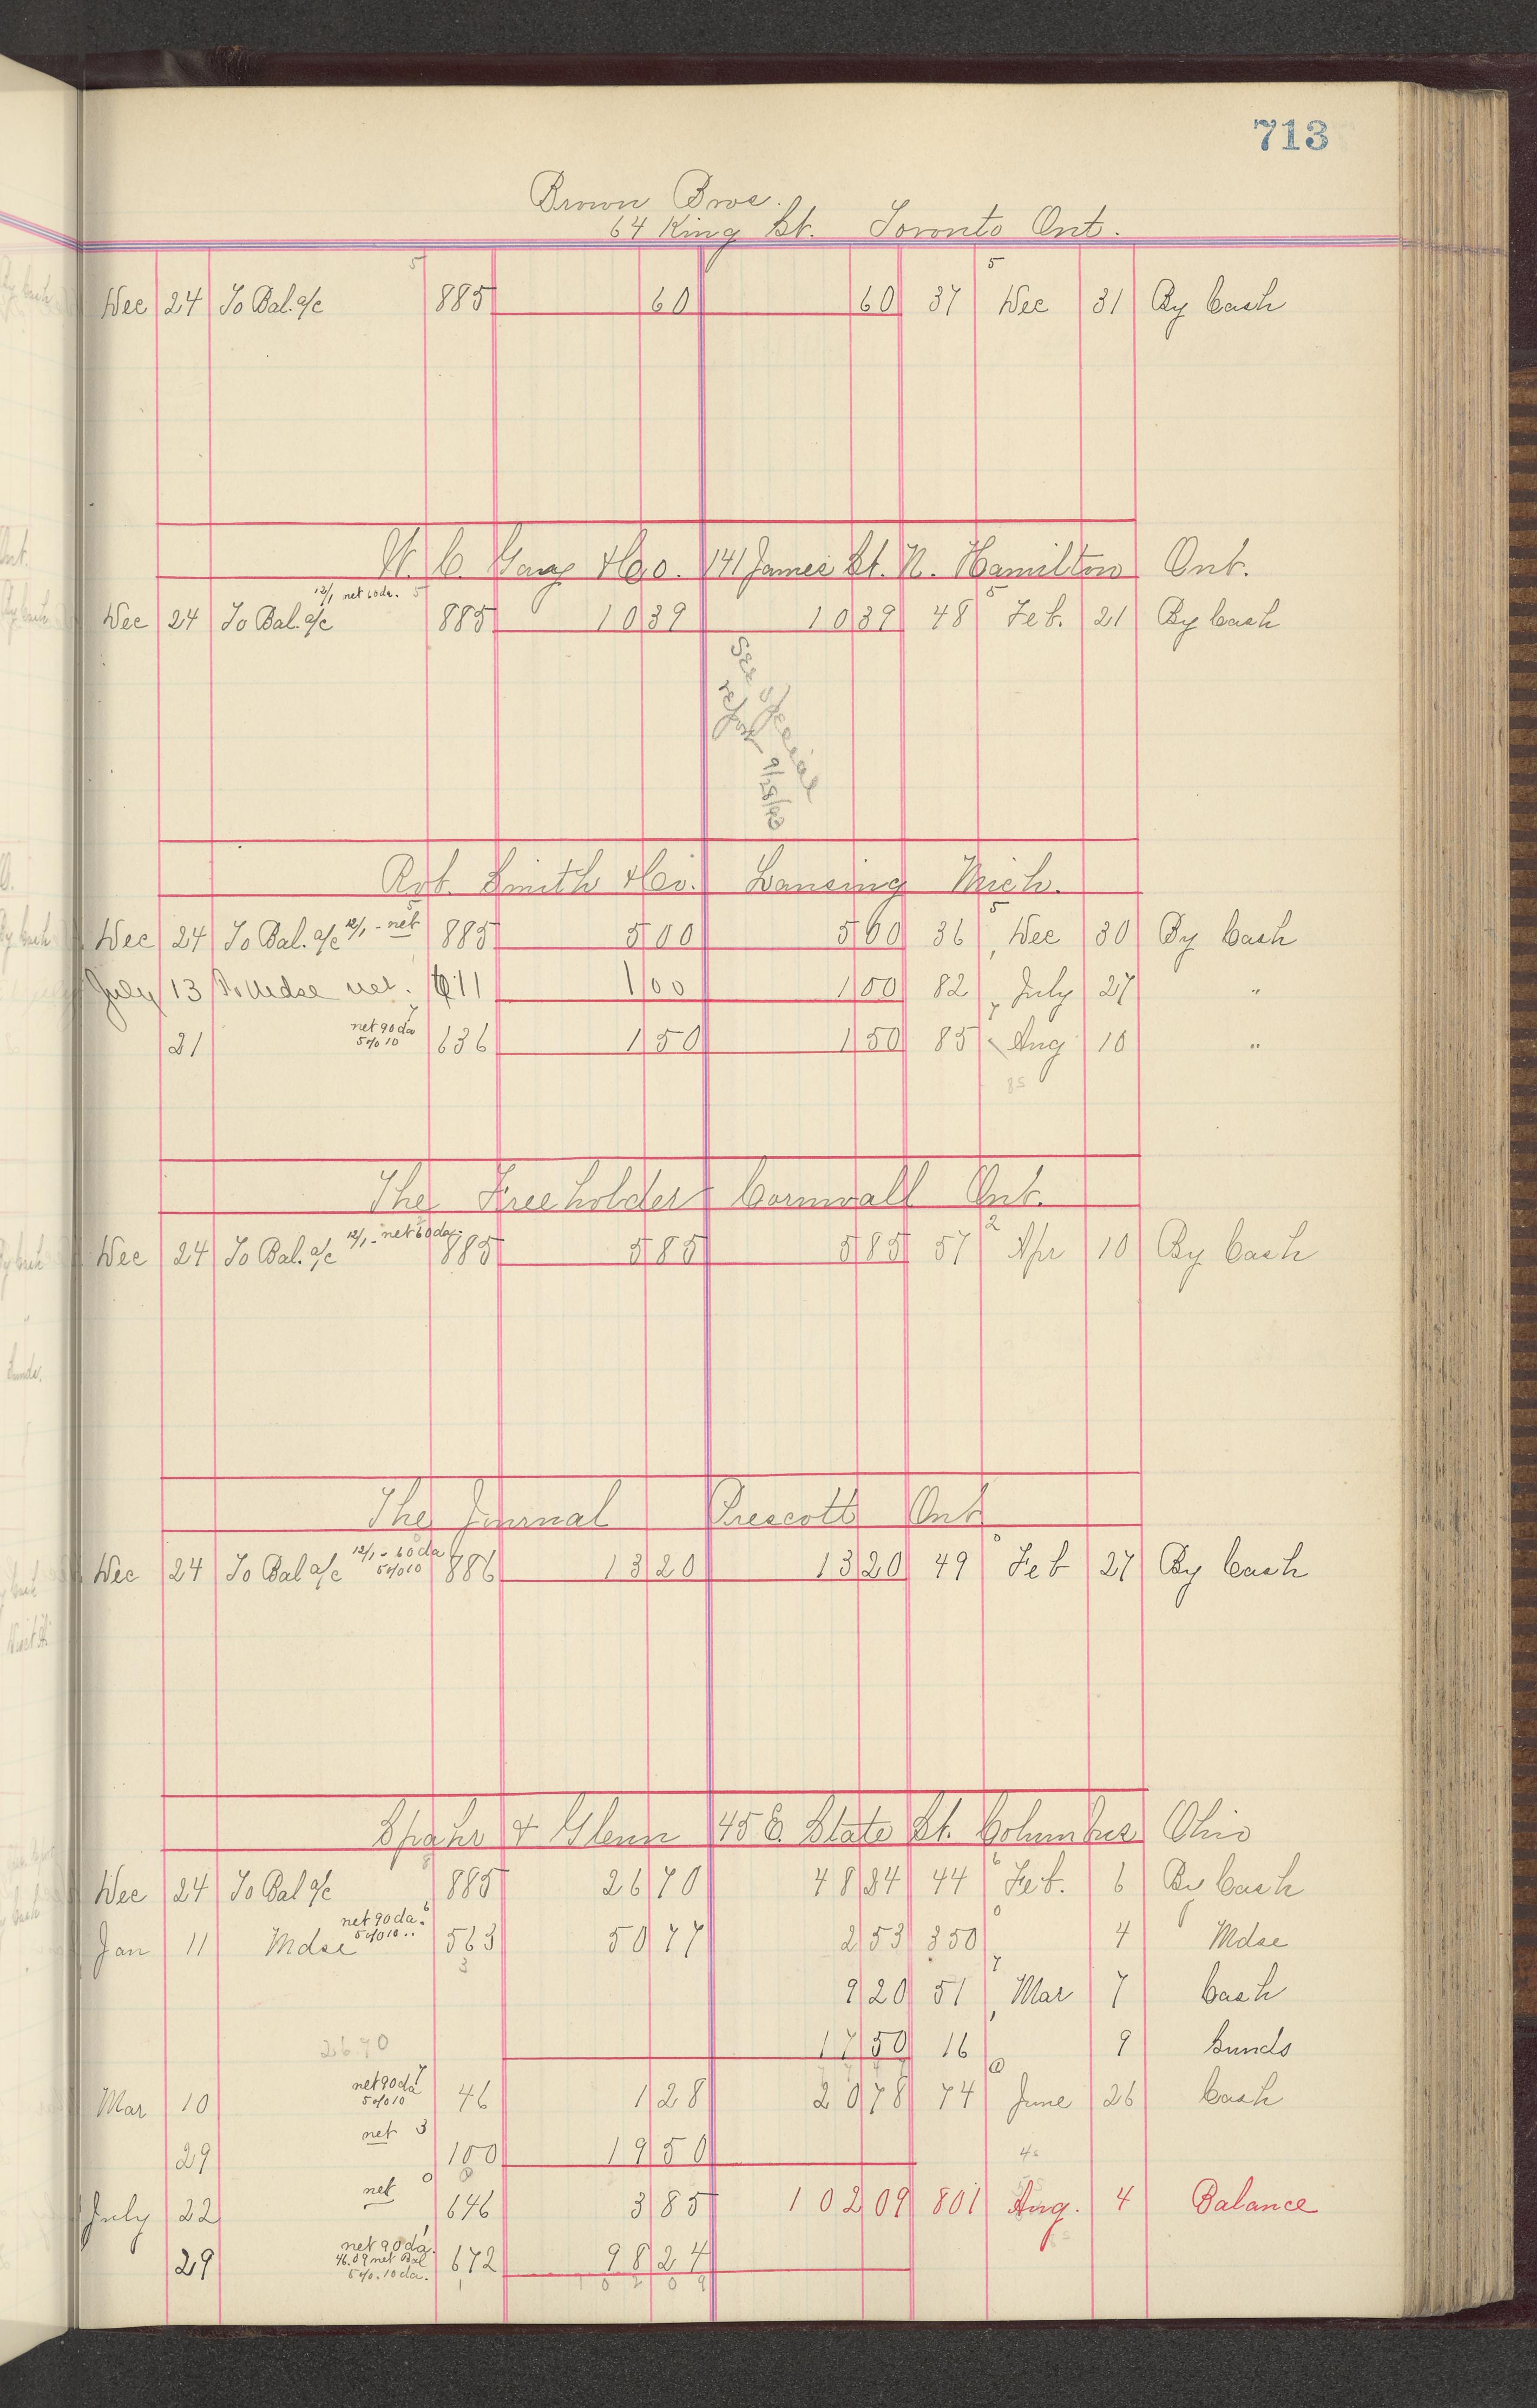 713
Brown Bros.
64 King St. Toronto Ont.
Dec 24 To Bal. a/c 885 60 60 37 Dec 31 By Cash
141 James St. N. Hamilton Ont.
12/1 net 60 da.
Dec 24 To Bal. a/c 885 10 39 10 39 48 Feb. 21 By Cash
Rob. Smith & Co. Lansing Mich.
Dec 24 To Bal. a/c 12/1 - net 885 5 00 5 00 36 Dec 30 By Cash
July 13 To Mdse net. 611 1 00 1 00 82 July 27 "
net 90 da
21 5% 10 636 1 50 1 50 85 Aug 10 "
85
The Freeholder Cornwall Ont.
12/1 - net 60 da.
Dec 24 To Bal. a/c 885 5 85 5 85 57 Apr 10 By Cash
The Journal Prescott Ont
12/1 - 60 da
Dec 24 To Bal a/c 5% 10 886 13 20 13 20 49 Feb 27 By Cash
Spahr & Glenn 45 E. State St. Columbus Ohio
Dec 24 To Bal a/c 885 26 70 48 24 44 Feb. 6 By Cash
net 90 da.
Jan 11 Mdse 5% 10 563 50 77 2 53 350 4 Mdse
9 20 51 Mar 7 Cash
2670 17 50 16 9 Sunds
net 90 da
Mar 10 5% 10 46 1 28 20 78 74 June 26 Cash
29 net 100 19 50
July 22 net 646 3 85 102 09 801 Aug. 4 Balance
net 90 da.
46.09 net Bal
29 5%. 10 da. 672 98 24
102 09